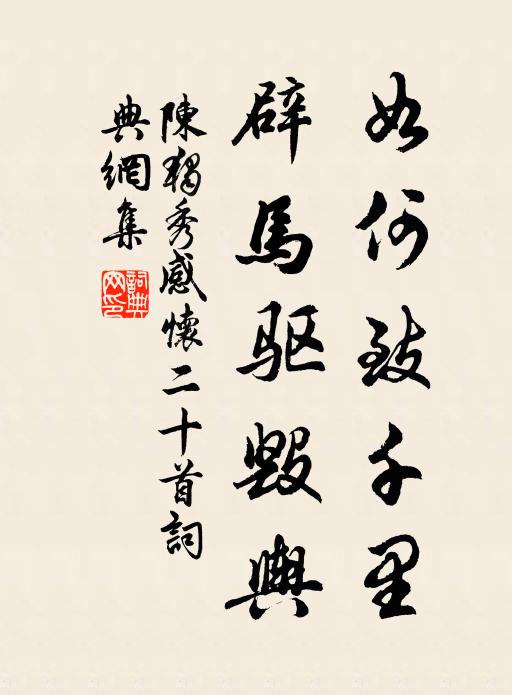 如何致千里
辟馬驱毀輿
陳獨秀感懷二十首詞
典網集
詞典網印